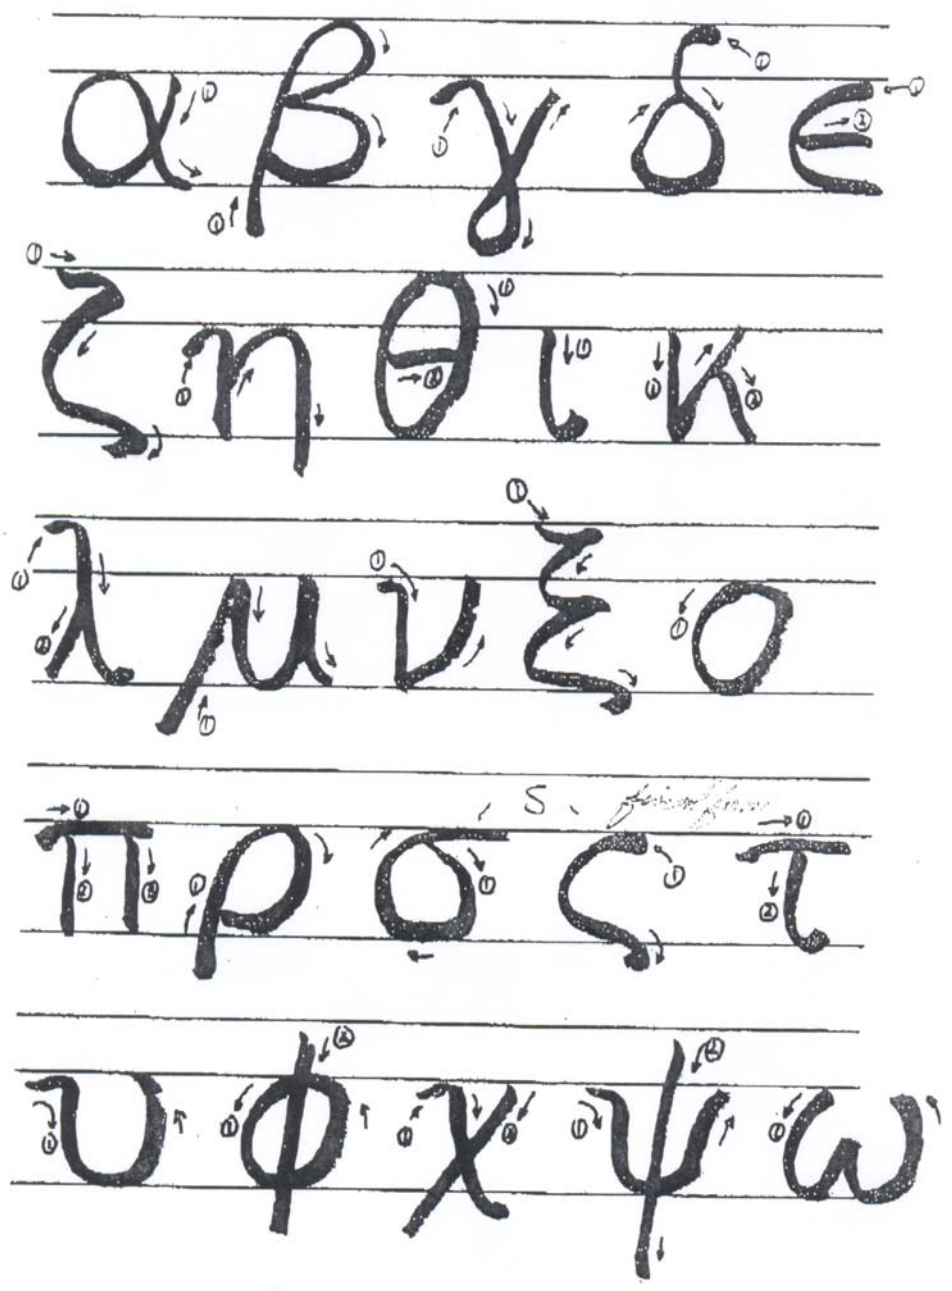 α β γ δ ε
ζ η θ ι κ
λ μ ν ξ ο
S
π ρ σ ς τ
υ φ χ ψ ω